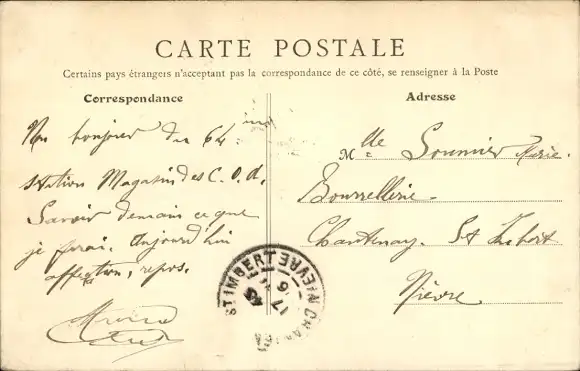 CARTE POSTALE
Certains pays étrangers n'acceptant pas la correspondance de ce côté, se renseigner à la Poste
Correspondance
Un bonjour du 64
Station Magasin des C.O.A.
Savoir demain ce que
je ferai. Aujourd'hui
affection, repos.
Adresse
Mlle Sounnier Marie
Bourrellerie
Chantenay. St Imbert
Nièvre
ST IMBERT NIEVRE